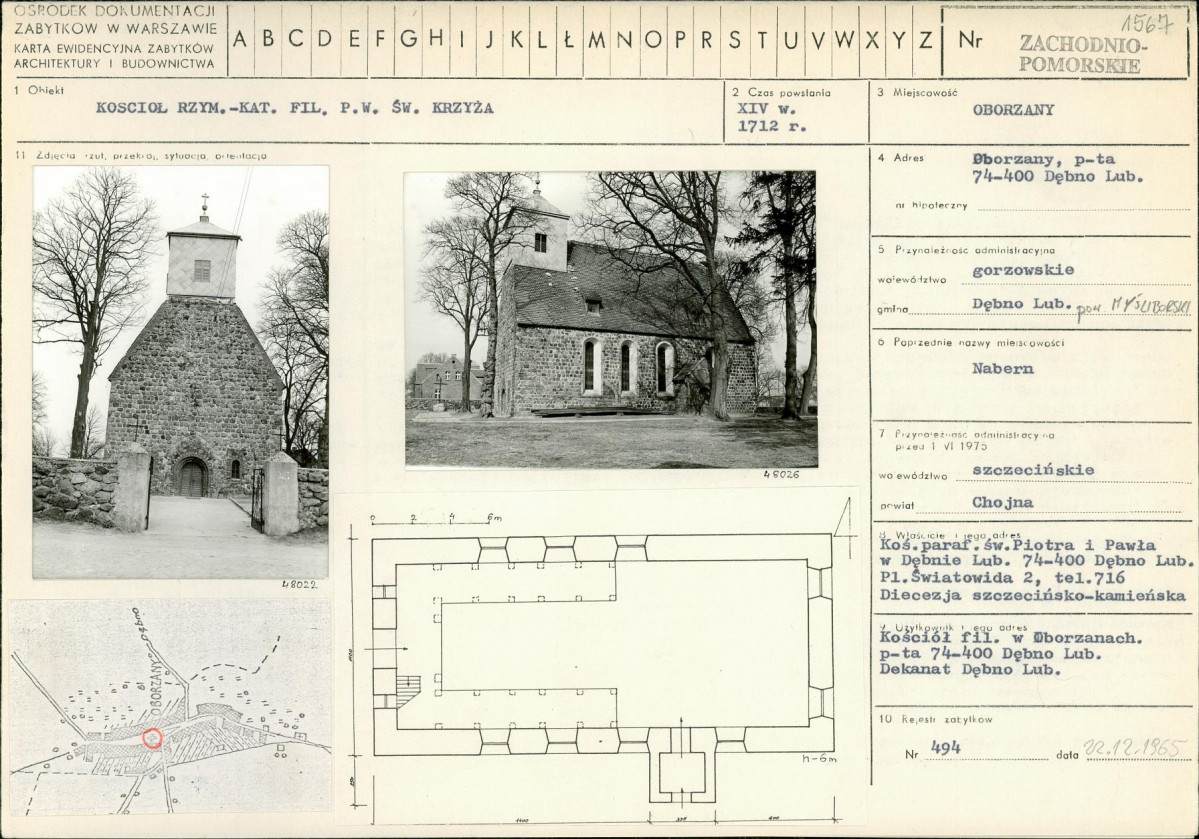 OŚRODEK DOKUMENTACJI
ZABYTKÓW W WARSZAWIE
KARTA EWIDENCYJNA ZABYTKÓW
ARCHITEKTURY I BUDOWNICTWA
A B C D E F G H I J K L Ł M N O P R S T U V W X Y Z
Nr
1567
ZACHODNIO-
POMORSKIE
1 Obiekt
KOSCIOŁ RZYM.-KAT. FIL. P.W. ŚW. KRZYŻA
2 Czas powstania
XIV w.
1712 r.
3 Miejscowość
OBORZANY
11 Zdjęcia rzut, przekrój, sytuacja, orientacja
48022
48026
0 2 4 6m
h-6m
1400
OBORZANY
4 Adres
Oborzany, p-ta
74-400 Dębno Lub.
nr hipoteczny
5 Przynależność administracyjna
województwo gorzowskie
gmina Dębno Lub. pow MYŚLIBORSKI
6 Poprzednie nazwy miejscowości
Nabern
7 Przynależność administracyjna
przed 1 VI 1975
województwo szczecińskie
powiat Chojna
8 Właściciel i jego adres
Koś.paraf.św.Piotra i Pawła
w Dębnie Lub. 74-400 Dębno Lub.
Pl.Światowida 2, tel.716
Diecezja szczecińsko-kamieńska
9 Użytkownik i jego adres
Kościół fil. w Oborzanach.
p-ta 74-400 Dębno Lub.
Dekanat Dębno Lub.
10 Rejestr zabytków
Nr 494 data 22.12.1965